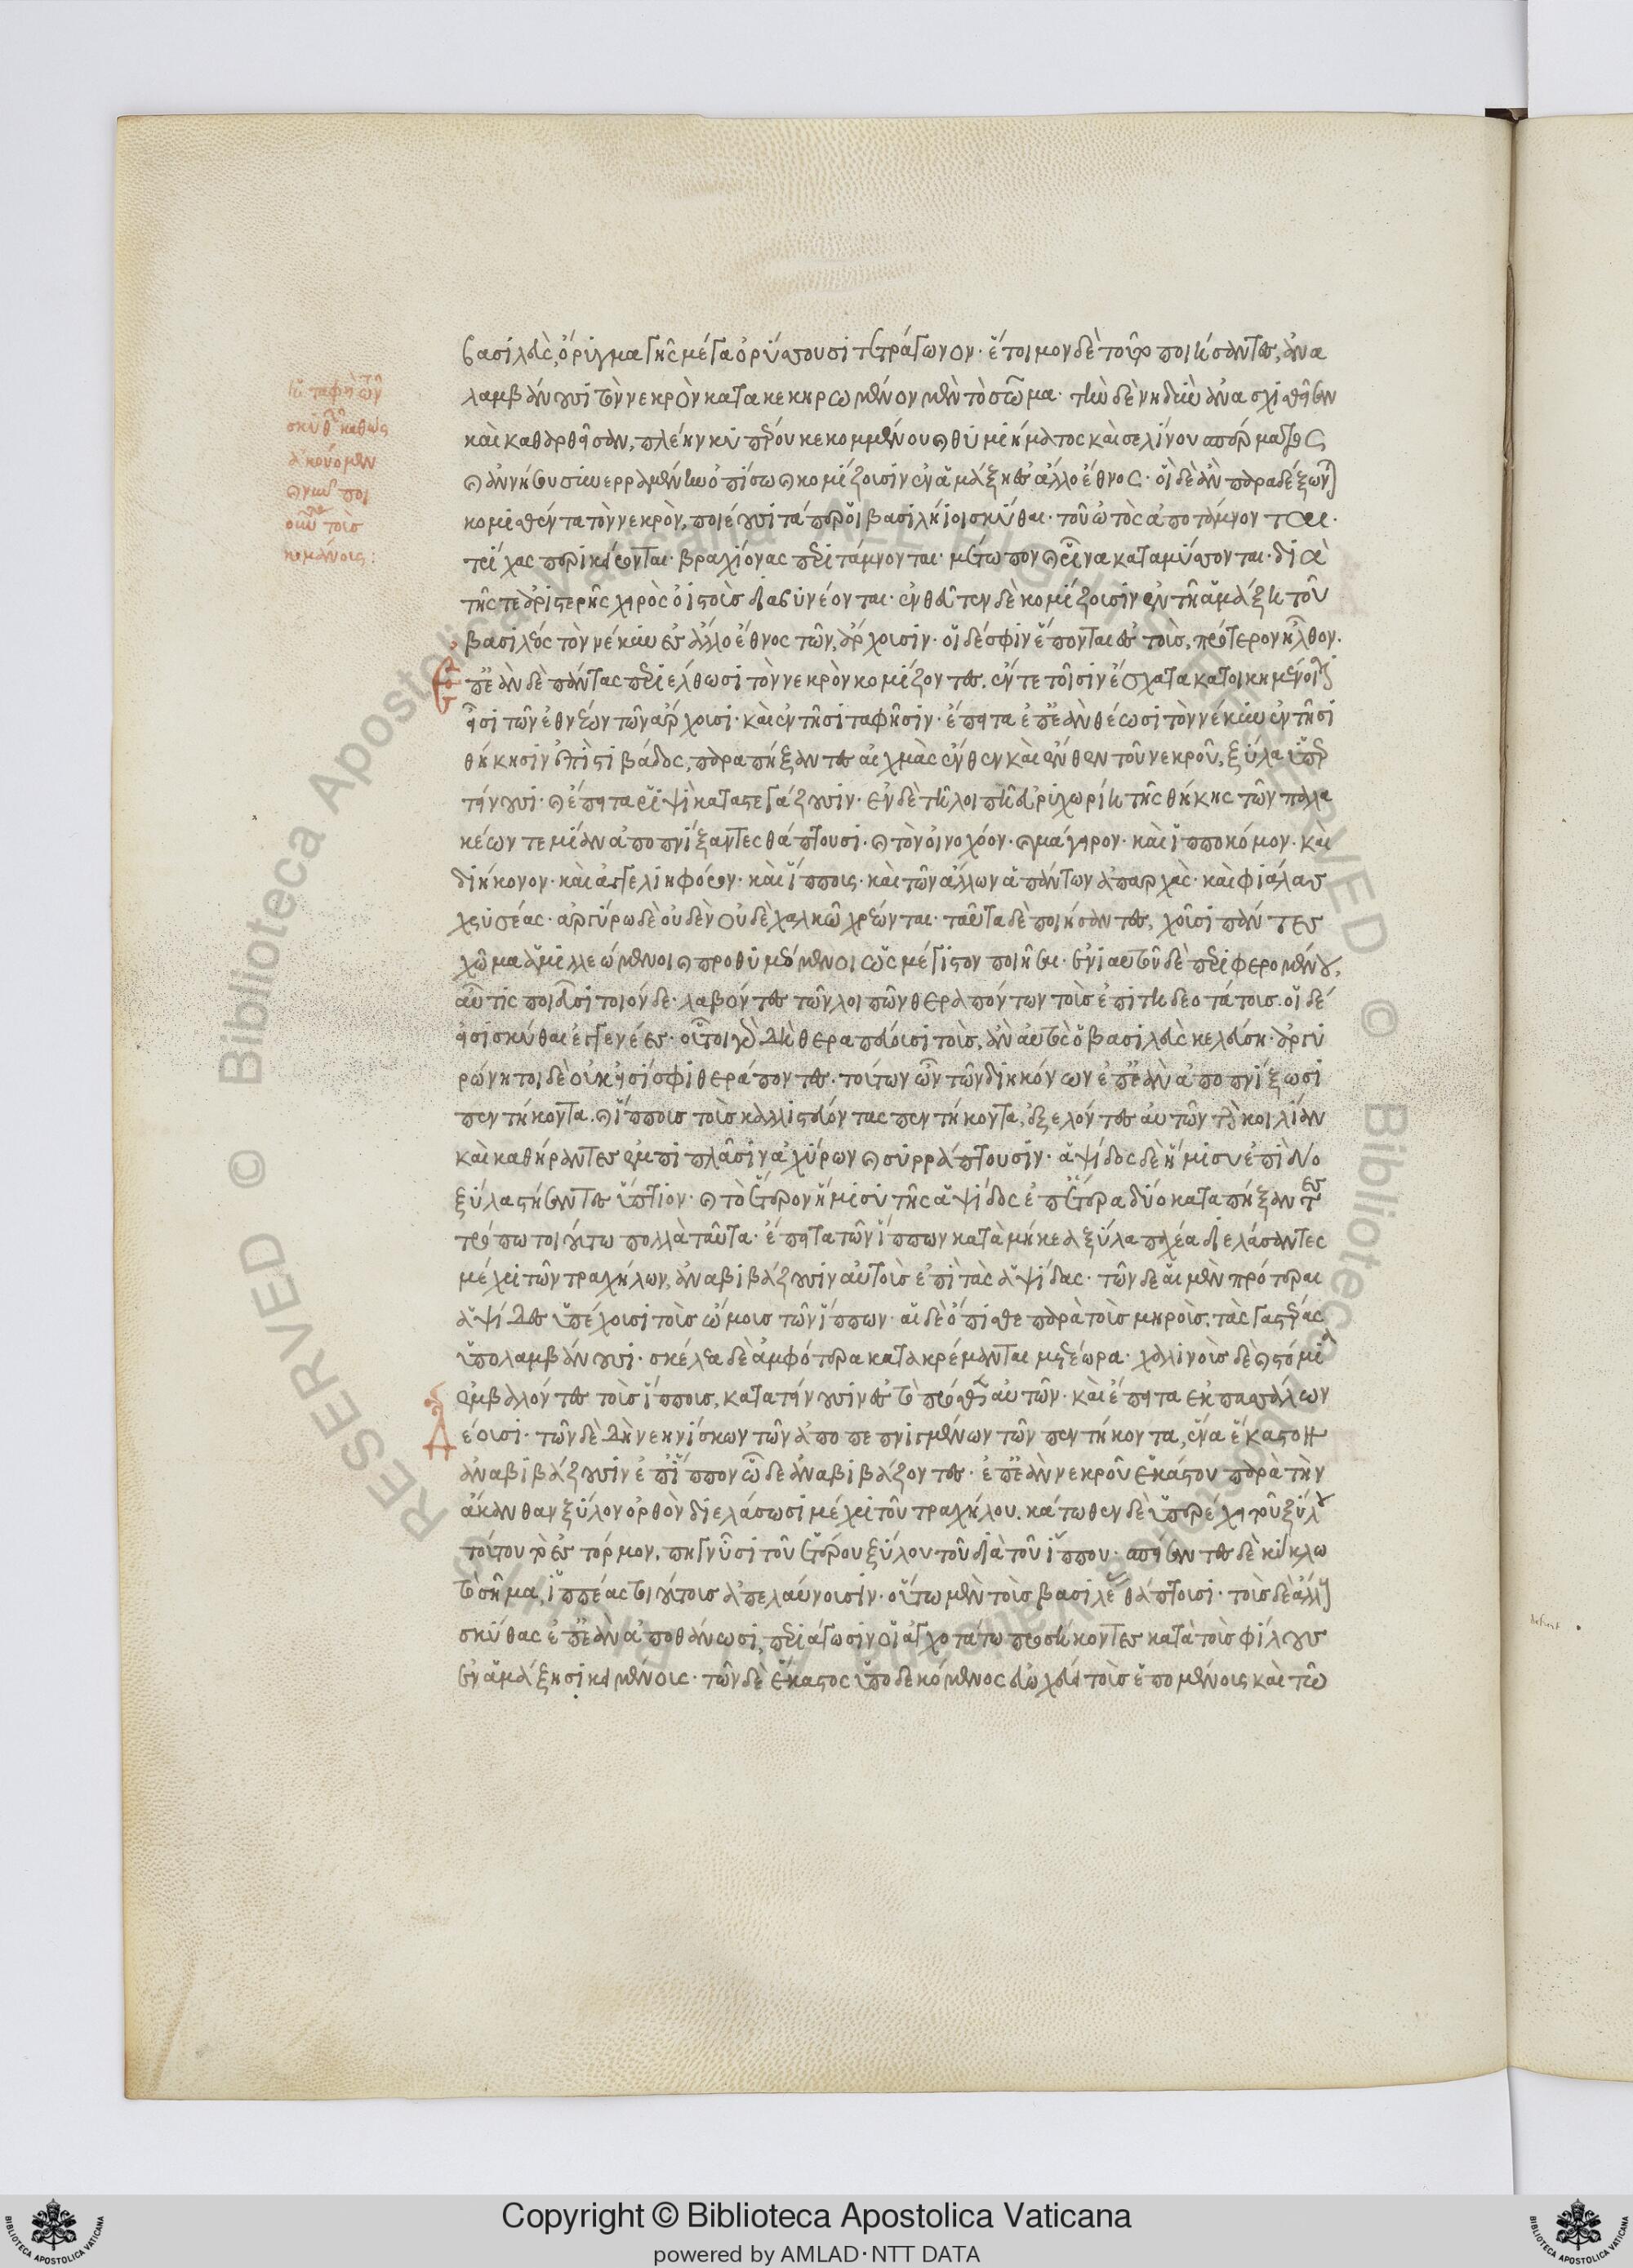 ἡ ταφὴ τῶν
σκυθῶν καθὼς
ἀκούομεν
καὶ νῦν ποι
τοῖς
κομάνοις:
βασιλεὺς, ὄρυγμα γῆς μέγα ὀρύσσουσι τετράγωνον· ἕτοιμον δὲ τοῦτο ποιήσαντες, ἀνα
λαμβάνουσι τὸν νεκρὸν κατακεκηρωμένον μὲν τὸ σῶμα· τὴν δὲ νηδὺν ἀνασχισθεῖσαν
καὶ καθαρθεῖσαν, πλέην κυπέρου κεκομμένου καὶ θυμιήματος καὶ σελίνου σπέρματος
καὶ ἀννήσου συνερραμένην ὀπίσω καὶ κομίζουσιν ἐν ἁμάξῃ ἐς ἄλλο ἔθνος· οἳ δὲ ἂν παραδέξων
κομισθέντα τὸν νεκρὸν, ποιέουσι τάπερ οἱ βασιλήϊοι σκύθαι· τοῦ ὠτὸς ἀποτάμνονται·
τρίχας περικείρονται· βραχίονας περιτάμνονται· μέτωπον καὶ ῥῖνα καταμύσσονται· διὰ
τῆς τε ἀριστερῆς χειρὸς ὀϊστοὺς διαβυνέονται· ἐνθεῦτεν δὲ κομίζουσιν ἐν τῇ ἁμάξῃ τοῦ
βασιλέος τὸν νέκυν ἐς ἄλλο ἔθνος τῶν, ἄρχουσιν· οἱ δέ σφιν ἕπονται ἐς τοὺς, πρότερον ἦλθον.
Ἐπεὰν δὲ πάντας περιέλθωσι τὸν νεκρὸν κομίζοντες, ἔν τε τοῖσιν ἔσχατα κατοικημένοις
εἰσὶ τῶν ἐθνέων τῶν ἄρχουσι· καὶ ἐν τῇσι ταφῇσιν· ἔπειτα ἐπεὰν θέωσι τὸν νέκυν ἐν τῇσι
θήκησιν ἐπὶ στιβάδος, παραπήξαντες αἰχμὰς ἔνθεν καὶ ἔνθεν τοῦ νεκροῦ, ξύλα ὑπερ
τείνουσι· καὶ ἔπειτα ῥιψὶ καταστεγάζουσιν· ἐν δὲ τῇ λοιπῇ εὐρυχωρίῃ τῆς θήκης τῶν παλλα
κέων τε μίαν ἀποπνίξαντες θάπτουσι· καὶ τὸν οἰνοχόον· καὶ μάγειρον· καὶ ἱπποκόμον· καὶ
διήκονον· καὶ ἀγγελιηφόρον· καὶ ἵππους· καὶ τῶν ἄλλων ἁπάντων ἀπαρχὰς· καὶ φιάλας
χρυσέας· ἀργύρω δὲ οὐδὲν οὐδὲ χαλκῶ χρέωνται· ταῦτα δὲ ποιήσαντες, χοῦσι πάντες
χῶμα ἁμιλλεώμενοι καὶ προθυμεόμενοι ὡς μέγιστον ποιῆσαι· ἐνιαυτοῦ δὲ περιφερομένου,
αὖτις ποιεῦσι τοιόνδε· λαβόντες τῶν λοιπῶν θεραπόντων τοὺς ἐπιτηδεοτάτους· οἱ δέ
εἰσι σκύθαι ἐγγενέες· οὗτοι γὰρ δὴ θεραπεύουσι τοὺς, ἂν αὐτὸς ὁ βασιλεὺς κελεύσῃ· ἀργυ
ρώνητοι δὲ οὐκ εἰσί σφι θεράποντες· τούτων ὦν τῶν διηκόνων ἐπεὰν ἀποπνίξωσι
πεντήκοντα· καὶ ἵππους τοὺς καλλιστεύοντας πεντήκοντα, ἐξελόντες αὐτῶν τὴν κοιλίαν
καὶ καθήραντες ἐμπιπλᾶσιν ἀχύρων καὶ συρράπτουσιν· ἁψίδος δὲ ἥμισυ ἐπὶ δύο
ξύλα στήσαντες ὕπτιον· καὶ τὸ ἕτερον ἥμισυ τῆς ἁψίδος ἐπ' ἕτερα δύο καταπήξαντες
τρόπω τοιούτω πολλὰ ταῦτα· ἔπειτα τῶν ἵππων κατὰ μήκεα ξύλα παχέα διελάσαντες
μέχρι τῶν τραχήλων, ἀναβιβάζουσιν αὐτοὺς ἐπὶ τὰς ἁψίδας· τῶν δὲ αἱ μὲν πρότεραι
ἁψίδες ὑπέχουσι τοὺς ὤμους τῶν ἵππων· αἱ δὲ ὄπισθε παρὰ τοὺς μηροὺς, τὰς γαστέρας
ὑπολαμβάνουσι· σκέλεα δὲ ἀμφότερα κατακρέμανται μετέωρα· χαλινοὺς δὲ καὶ στόμια
ἐμβαλόντες τοὺς ἵππους, κατατείνουσιν ἐς τὸ πρόσθεν αὐτῶν· καὶ ἔπειτα ἐκ πασσάλων
Δέουσι· τῶν δὲ δὴ νεηνίσκων τῶν ἀποπεπνιγμένων τῶν πεντήκοντα, ἕνα ἕκαστον
ἀναβιβάζουσιν ἐπ' ἵππον ὧδε ἀναβιβάζοντες· ἐπεὰν νεκροῦ ἑκάστου παρὰ τὴν
ἄκανθαν ξύλον ὀρθὸν διελάσωσι μέχρι τοῦ τραχήλου· κάτωθεν δὲ ὑπερέχει τοῦ ξύλου
τούτου τὸ ἐς τόρμον, πηγνῦσι τοῦ ἑτέρου ξύλου τοῦ διὰ τοῦ ἵππου· ἐπιστήσαντες δὲ κύκλω
τὸ σῆμα, ἱππέας τοιούτους ἀπελαύνουσιν· οὕτω μὲν τοὺς βασιλέας θάπτουσι· τοὺς δὲ ἄλλους
σκύθας ἐπεὰν ἀποθάνωσι, περιάγωσιν οἱ ἀγχοτάτω προσήκοντες κατὰ τοὺς φίλους
ἐν ἁμάξῃσι κειμένους· τῶν δὲ ἕκαστος ὑποδεκόμενος εὐωχέει τοὺς ἑπομένους καὶ τῶ
Copyright © Biblioteca Apostolica Vaticana
powered by AMLAD·NTT DATA